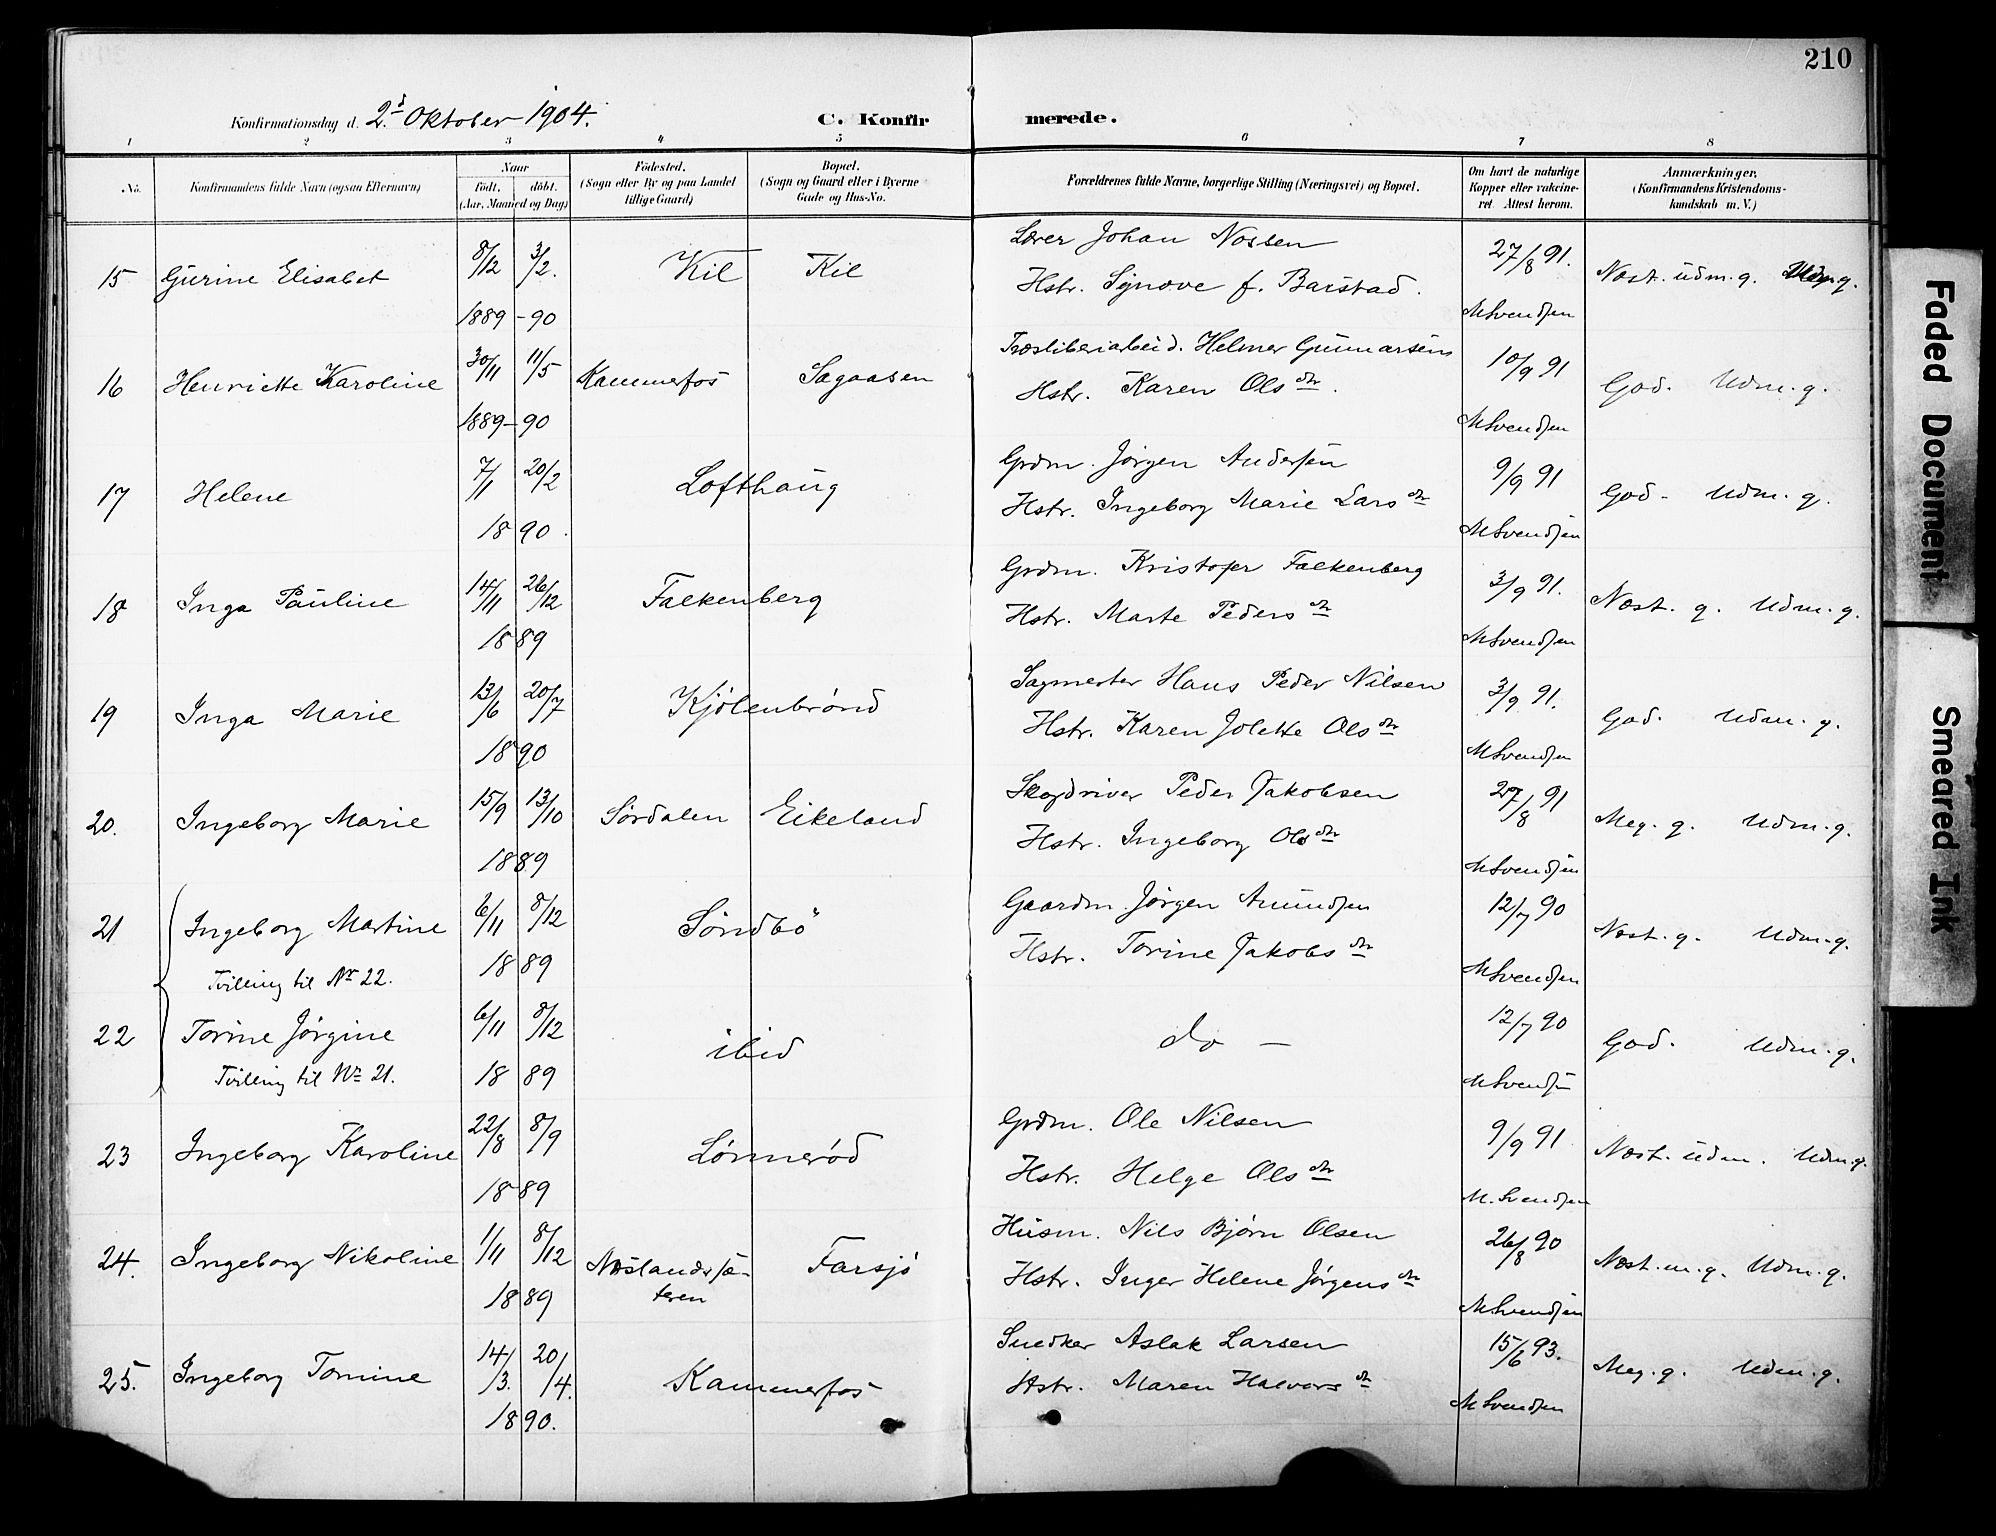 210
Konfirmationsdag d. 2d Oktober 1904. C. Konfirmerede.
1 2 3 4 5 6 7 8
No. Konfirmandens fulde Navn (ogsaa Efternavn) Naar født. døbt. (Aar, Maaned og Dag) Fødested. (Sogn eller By og paa Landet tillige Gaard) Bopæl. (Sogn og Gaard eller i Byerne Gade og Hus-No. Forældrenes fulde Navne, borgerlige Stilling (Næringsvei) og Bopæl. Om havt de naturlige Kopper eller vakcineret. Attest herom. Anmærkninger. (Konfirmandens Kristendomskundskab m. V.)
15 Gurine Elisabet 8/12 3/2. 1889-90 Kil Kil Lærer Johan Nossen
Hstr. Synove f. Barstad. 27/8 91. MSvendsen Næst. udm. g. Udm. g.
16 Henriette Karoline 30/11 11/5 1889-90 Kammerfos Sagaasen Træsliberiarbeid. Helmer Gunnarsen
Hstr. Karen Olsdtr. 10/9 91 MSvendsen God. Udm. g.
17 Helene 7/1 20/2 1890. Lofthaug Grdm. Jørgen Andersen
Hstr. Ingeborg Marie Larsdtr 9/9 91 MSvendsen God - Udm. g.
18 Inga Pauline 14/11 26/12 1889 Falkenberg Grdm. Kristofer Falkenberg
Hstr. Marte Pedersdtr 3/9 91. MSvendsen Næst. g. Udm. g.
19 Inga Marie 13/6 20/7 1890 Kjølenbrønd Sagmester Hans Peder Nilsen
Hstr. Karen Jolette Olsdtr 3/9 91. MSvendsen God. Udm. g.
20. Ingeborg Marie 15/9 13/10 1889 Sørdalen Eikeland Skogdriver Peder Jakobsen
Hstr. Ingeborg Olsdtr 27/8 91 MSvendsen Meg. g. Udm. g.
21 Ingeborg Martine 6/11 8/12 1889 Søndbö Gaardm. Jørgen Amundsen
Tvilling til Nr 22. Hstr. Torine Jakobsdtr 12/7 90 MSvendsen Næst. g. Udm. g.
22 Torine Jørgine 6/11 8/12 1889 ibid do - 12/7 90 MSvendsen God. Udm. g.
Tvilling til Nr 21.
23 Ingeborg Karoline 22/8 8/9 1889 Lønnerød Grdm. Ole Nilsen
Hstr. Helge Olsdtr 9/9 91 M. Svendsen Næst. udm. Udm. g.
24. Ingeborg Nikoline 1/11 8/12 1889 Næslandssæteren Farsjø Husm. Nils Bjørn Olsen
Hstr. Inger Helene Jørgensdtr 26/8 90 MSvendsen Næst. m. g. Udm. g.
25. Ingeborg Tomine 14/3. 20/4. 1890. Kammerfos Snedker Aslak Larsen
Hstr. Maren Halvorsdtr 15/6 93. MSvendsen Meg. g. Udm. g.
Faded Document
Smeared Ink